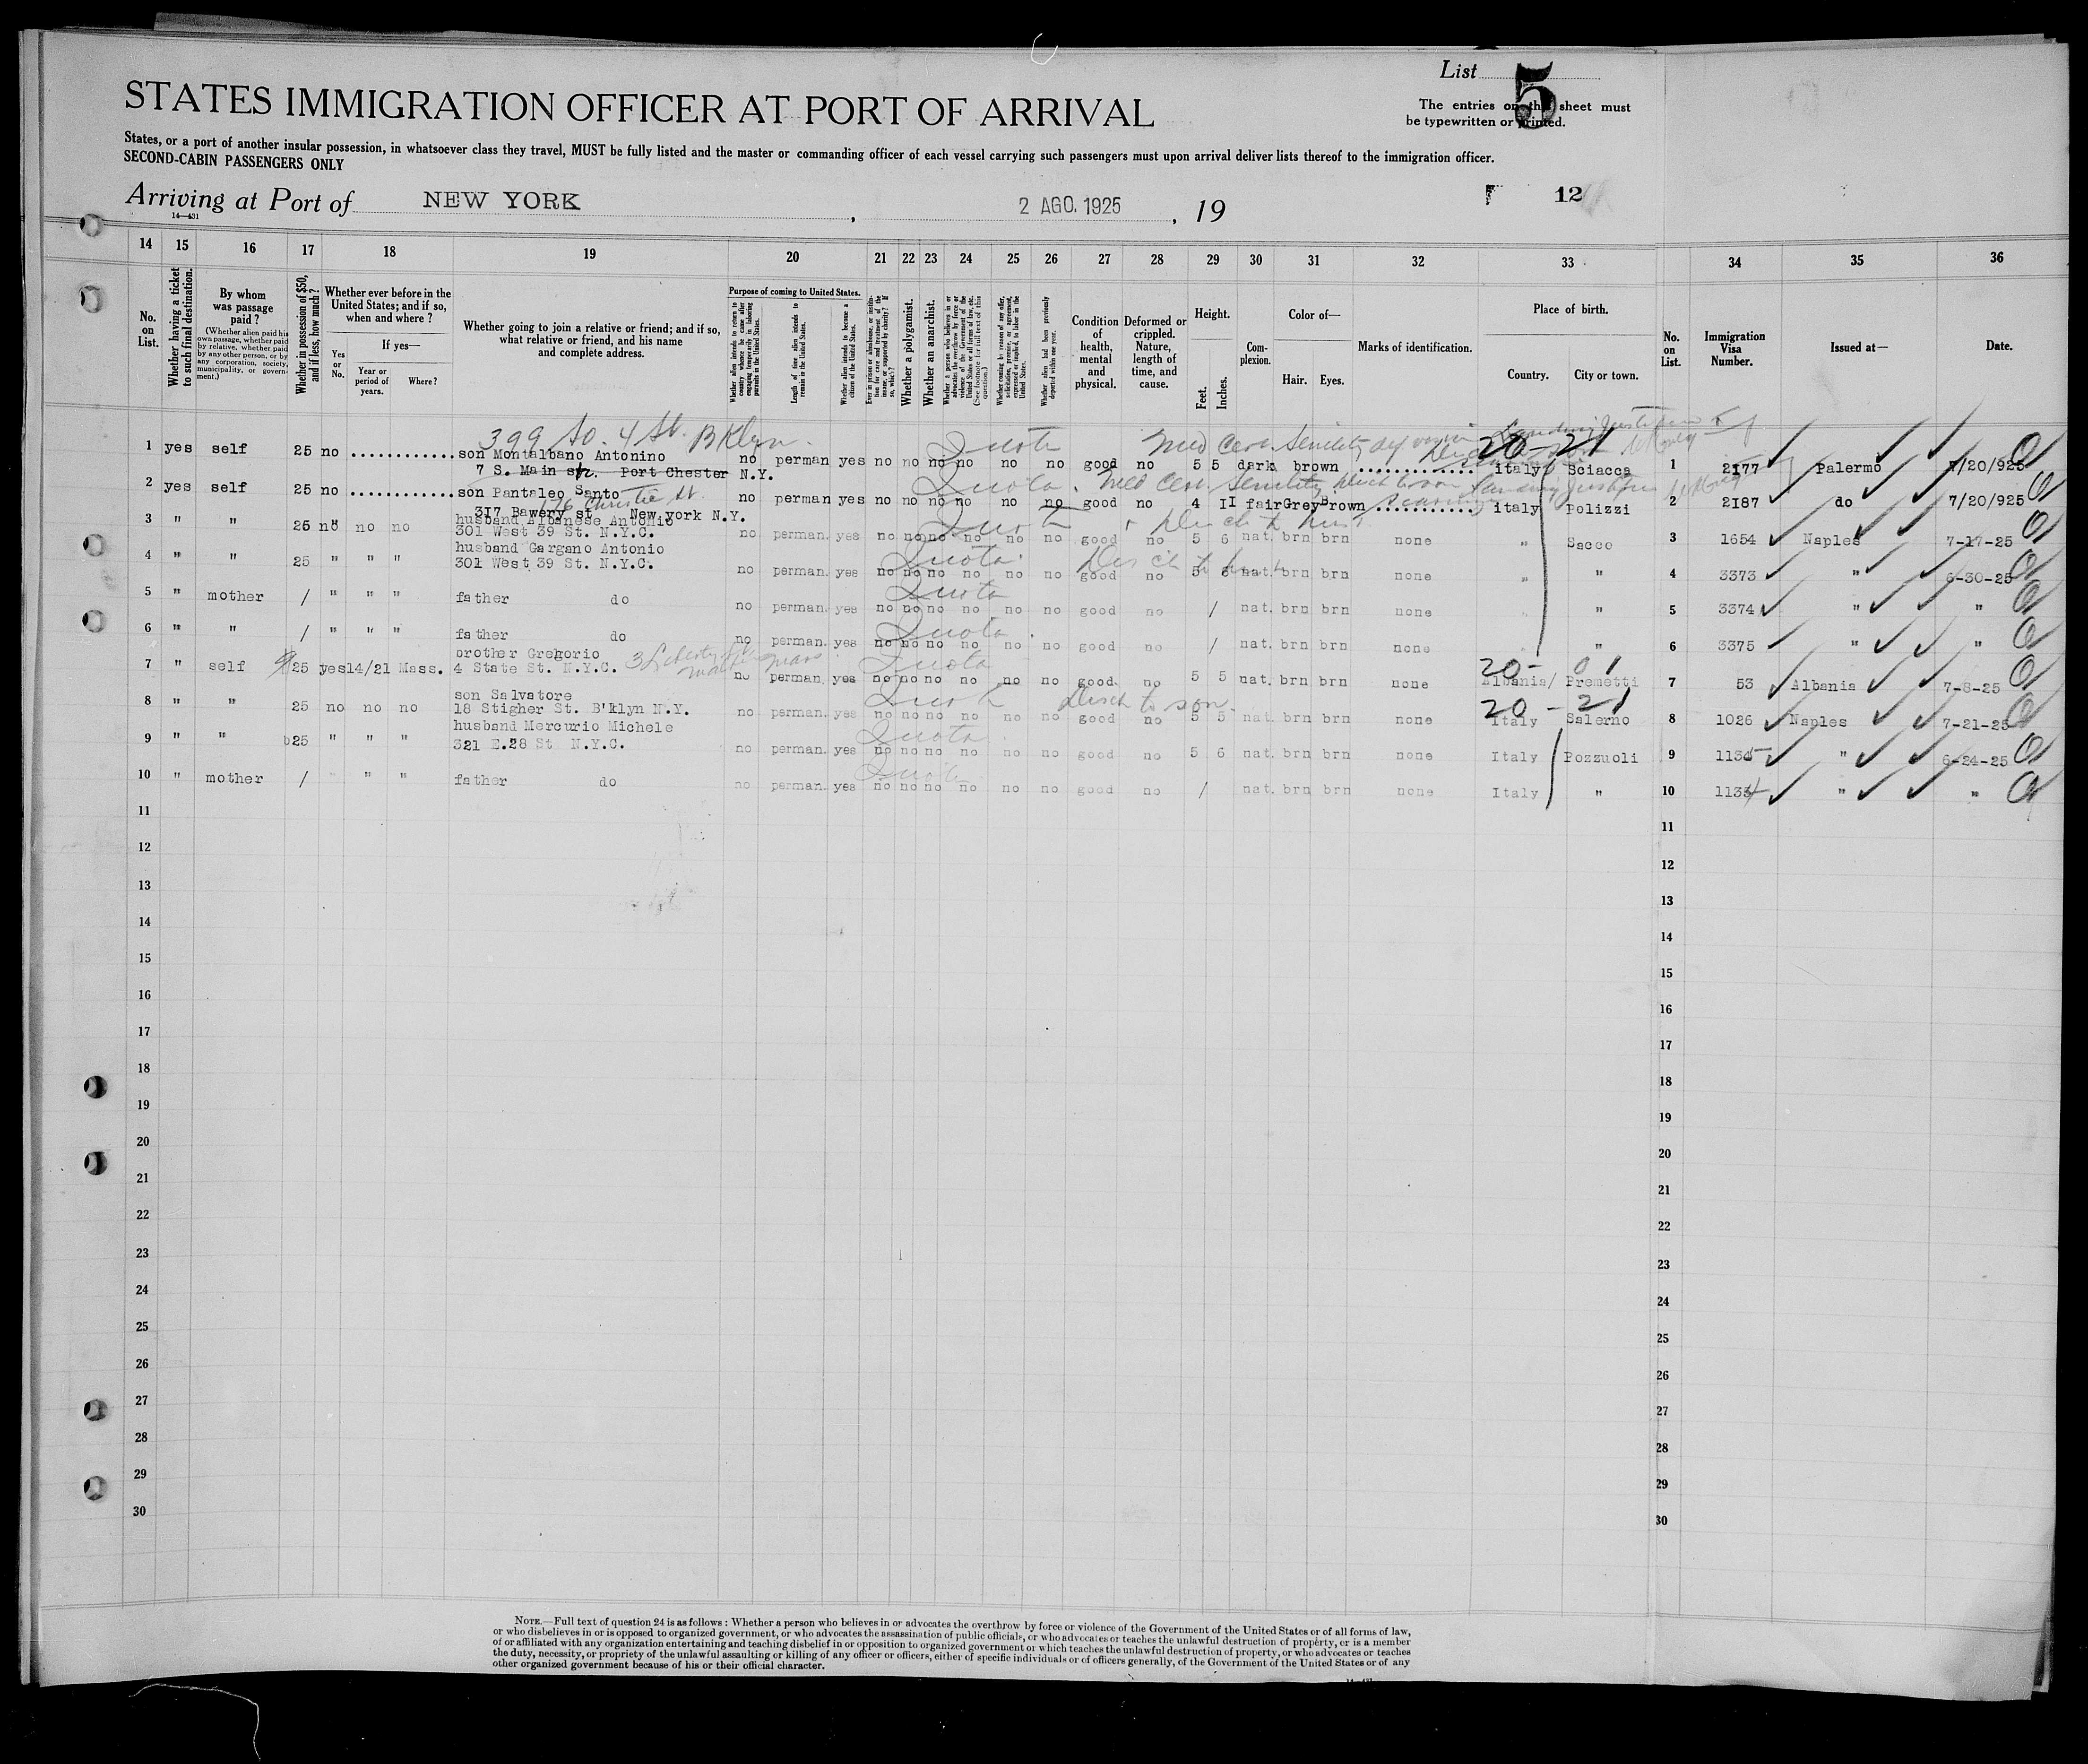 List 5
STATES IMMIGRATION OFFICER AT PORT OF ARRIVAL
The entries on this sheet must
be typewritten or printed.
States, or a port of another insular possession, in whatsoever class they travel, MUST be fully listed and the master or commanding officer of each vessel carrying such passengers must upon arrival deliver lists thereof to the immigration officer.
SECOND-CABIN PASSENGERS ONLY
Arriving at Port of NEW YORK, 2 AGO. 1925, 19 12
14—431
14 15 16 17 18 19 20 21 22 23 24 25 26 27 28 29 30 31 32 33 34 35 36
No. on List.
Whether having a ticket to such final destination.
By whom was passage paid?
(Whether alien paid his own passage, whether paid by relative, whether paid by any other person, or by any corporation, society, municipality, or government.)
Whether in possession of $50, and if less, how much?
Whether ever before in the United States; and if so, when and where?
Yes or No.
If yes—
Year or period of years.
Where?
Whether going to join a relative or friend; and if so, what relative or friend, and his name and complete address.
Purpose of coming to United States.
Length of time alien intends to remain in the United States.
Whether alien intends to become a citizen of the United States.
Whether a polygamist.
Whether an anarchist.
Condition of health, mental and physical.
Deformed or crippled. Nature, length of time, and cause.
Height.
Feet. Inches.
Complexion.
Color of—
Hair. Eyes.
Marks of identification.
Place of birth.
Country. City or town.
No. on List.
Immigration Visa Number.
Issued at—
Date.
399 So. 4 St. Bklyn. Quota Med Cert. Senility 20-21
1 yes self 25 no son Montalbano Antonino no perman yes no no no no no no good no 5 5 dark brown italy Sciacca 1 2177 Palermo 7/20/925
7 S. Main str. Port Chester N.Y.
Quota Med Cert. Senility
2 yes self 25 no son Pantaleo Santo no perman yes no no no no no no good no 4 II fair Grey Brown italy Polizzi 2 2187 do 7/20/925
176 Christie St.
317 Bawery st New york N.Y.
Quota
3 " " 25 n" no no husband Albanese Antonio no perman. yes no no no no no no good no 5 6 nat. brn brn none " Sacco 3 1654 Naples 7-17-25
301 West 39 St. N.Y.C.
Quota
4 " " 25 " " " husband Gargano Antonio no perman. yes no no no no no no good no 5 6 nat. brn brn none " " 4 3373 " 6-30-25
301 West 39 St. N.Y.C.
Quota
5 " mother / " " " father do no perman. yes no no no no no no good no / nat. brn brn none " 5 3374 " "
Quota
6 " " / " " " father do no perman. yes no no no no no no good no / nat. brn brn none " 6 3375 " "
Quota 20-
7 " self 25 yes 14/21 Mass. brother Gregorio no perman. yes no no no no no no good no 5 5 nat. brn brn none Albania/ Premetti 7 53 Albania 7-8-25
4 State St. N.Y.C. 3 Liberty St. Mass
Quota Disch to son. 20-21
8 " " 25 no no no son Salvatore no perman. yes no no no no no no good no 5 5 nat. brn brn none Italy Salerno 8 1026 Naples 7-21-25
18 Stigher St. B'klyn N.Y.
Quota
9 " " 25 " " " husband Mercurio Michele no perman. yes no no no no no no good no 5 6 nat. brn brn none Italy Pozzuoli 9 1135 " 6-24-25
321 E.28 St. N.Y.C.
Quota
10 " mother / " " " father do no perman. yes no no no no no no good no / nat. brn brn none Italy " 10 1134 " "
11 11
12 12
13 13
14 14
15 15
16 16
17 17
18 18
19 19
20 20
21 21
22 22
23 23
24 24
25 25
26 26
27 27
28 28
29 29
30 30
NOTE.—Full text of question 24 is as follows: Whether a person who believes in or advocates the overthrow by force or violence of the Government of the United States or of all forms of law,
or who disbelieves in or is opposed to organized government, or who advocates the assassination of public officials, or who advocates or teaches the unlawful destruction of property, or is a member
of or affiliated with any organization entertaining and teaching disbelief in or opposition to organized government or which teaches the unlawful destruction of property, or who advocates or teaches
the duty, necessity, or propriety of the unlawful assaulting or killing of any officer or officers, either of specific individuals or of officers generally, of the Government of the United States or of any
other organized government because of his or their official character.